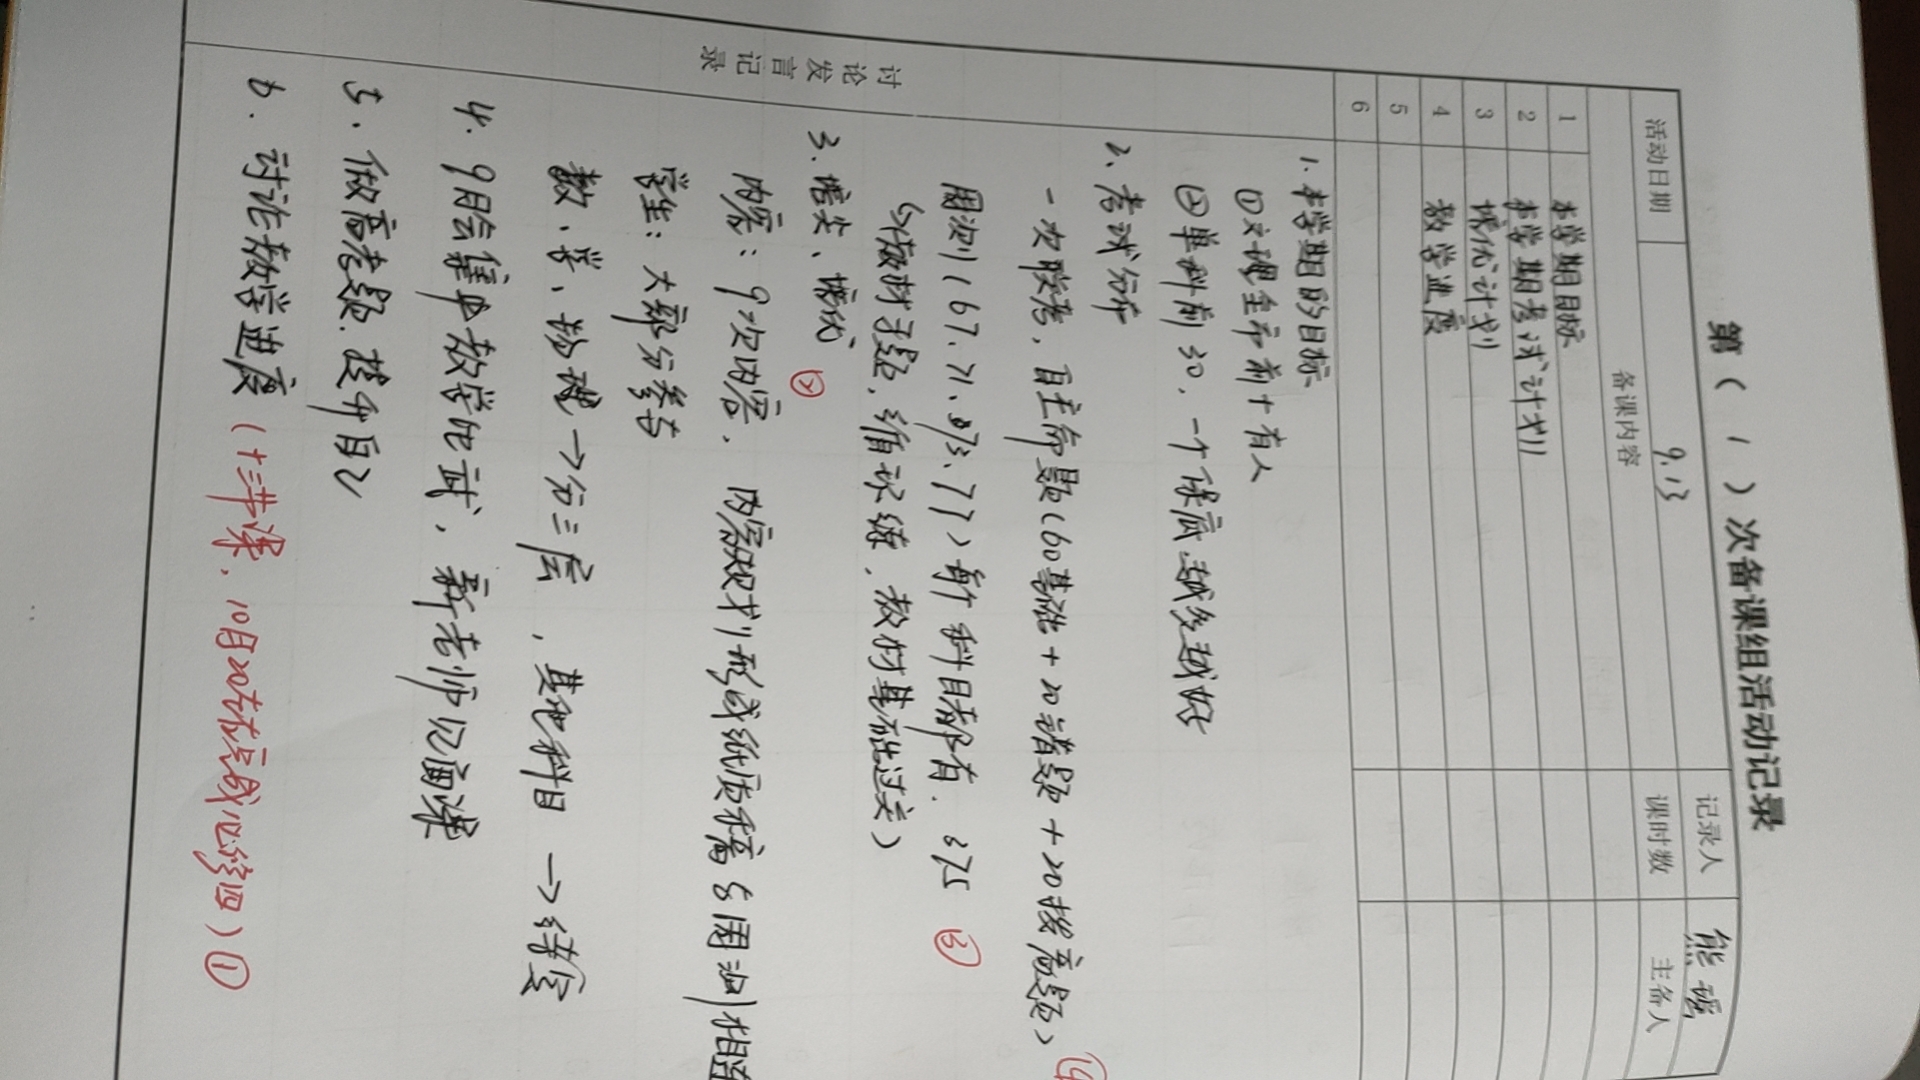 第（1）次备课组活动记录
活动日期 9.13 记录人 熊
备课内容 课时数 主备人
1 本学期目标
2 本学期考试计划
3 培优计划
4 教学进度
5
6
讨论发言记录
1.本学期的目标
①文理全市前十有人
②单科前30.一个保底 越多越好
2.考试分析
一次联考，自主命题(60基础+20诸题+20拔高题)
周测(67.71.73.77)每个科目都有.
↳做材手题.维训练.教材基础过关)
3.培尖、培优 ②
内容：9次内容. 内容规划形成纸质稿 与周测相当
学生：大部分参与
数.学、物理→分三层，其他科目→待定
4. 9月会集中教学比武，新老师见面课
5.做高考题.提升自己
6.讨论教学进度(十三节课.10月20左右完成必修四)①